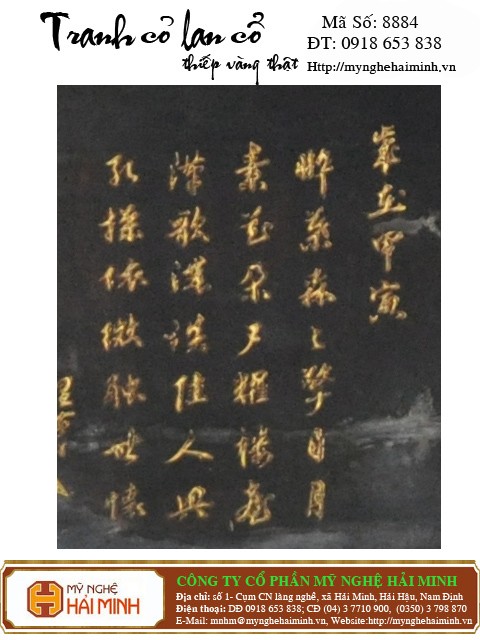 Tranh cỏ lan cổ
thiếp vàng thật
Mã Số: 8884
ĐT: 0918 653 838
Http://mynghehaiminh.vn
歲在甲寅
葉森々擎日月
素花朵戶耀
歌漢佳人興
孔操依微
MỸ NGHỆ
HẢI MINH
CÔNG TY CỔ PHẦN MỸ NGHỆ HẢI MINH
Địa chỉ: số 1- Cụm CN làng nghề, xã Hải Minh, Hải Hậu, Nam Định
Điện thoại: DĐ 0918 653 838; CĐ (04) 3 7710 900, (0350) 3 798 870
E-Mail: mnhm@mynghehaiminh.vn, Website:http://mynghehaiminh.vn